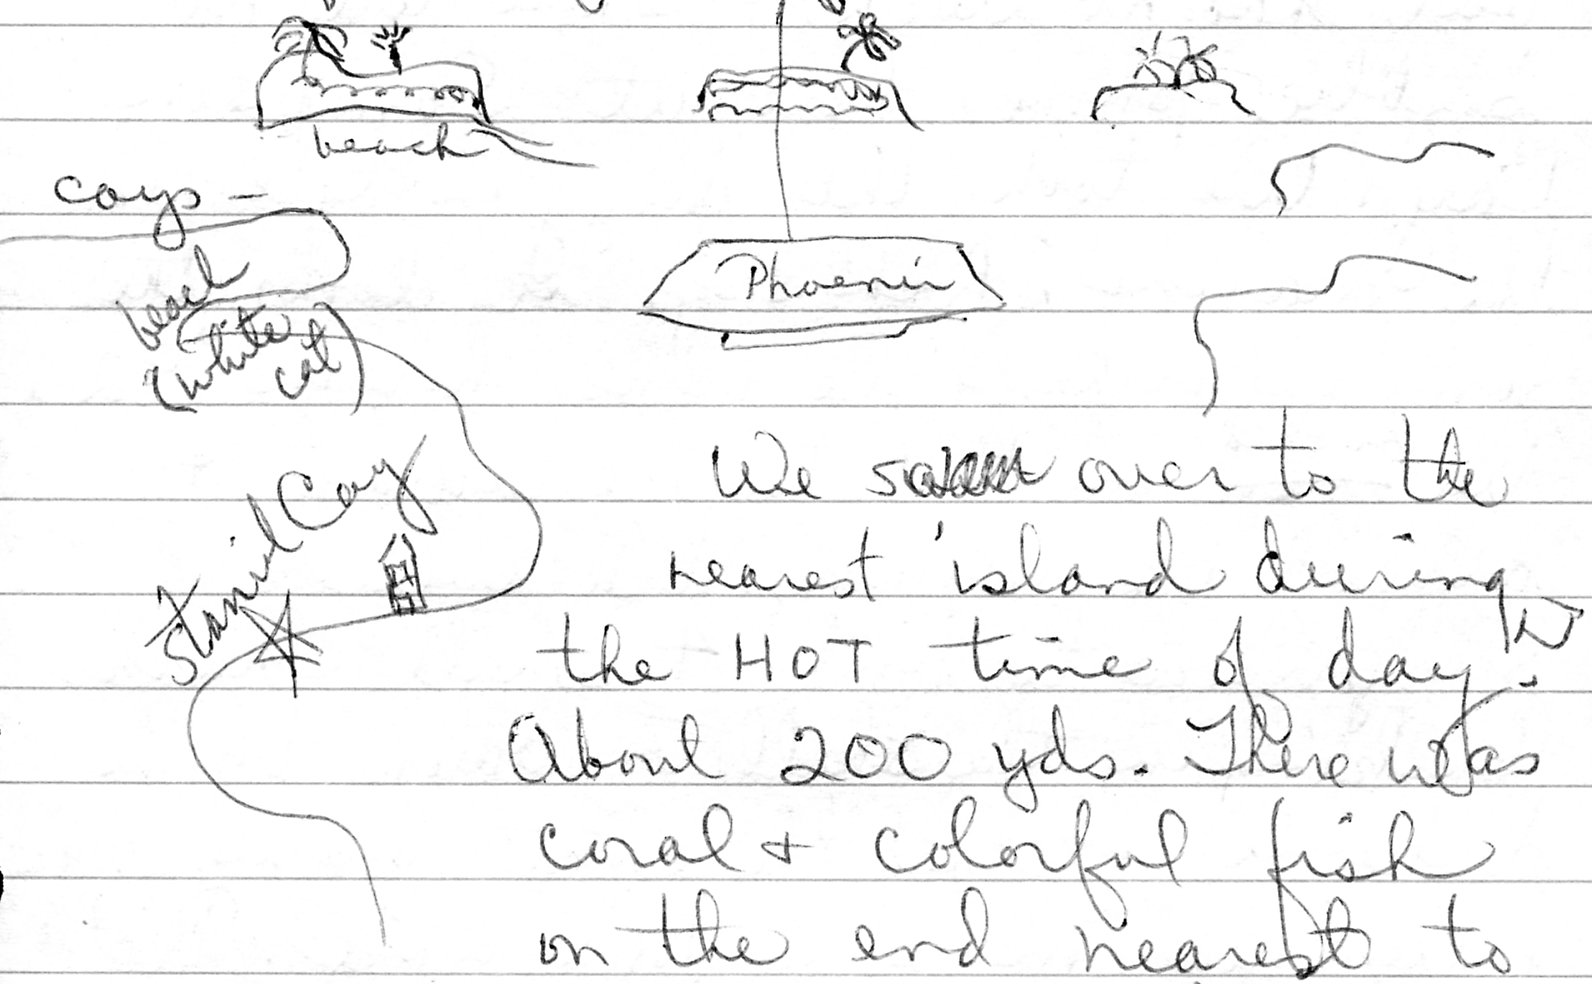 beach
cays -
Phoenix
beach
(white
cat)
Staniel Cay
We over to the
nearest island during
the HOT time of day.
About 200 yds. There was
coral + colorful fish
on the end nearest to